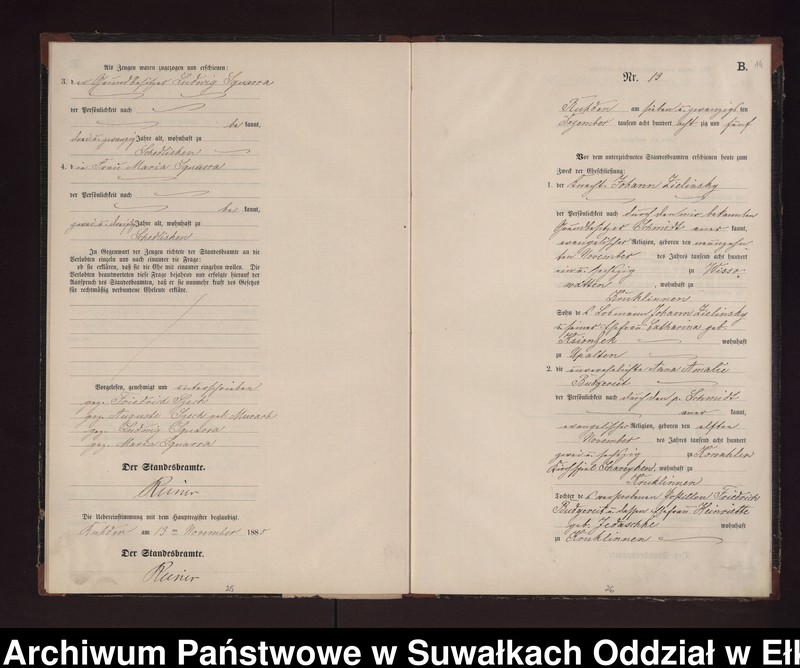 Als Zeugen waren zugezogen und erschienen:
3. der Grundbesitzer Ludwig Squarra
der Persönlichkeit nach
be kannt,
drei u. zwanzig Jahre alt, wohnhaft zu
Schedlisken
4. die Frau Maria Squarra
der Persönlichkeit nach
be kannt,
zwei u. dreißig Jahre alt, wohnhaft zu
Schedlisken
In Gegenwart der Zeugen richtete der Standesbeamte an die
Verlobten einzeln und nach einander die Frage:
ob sie erklären, daß sie die Ehe mit einander eingehen wollen. Die
Verlobten beantworteten diese Frage bejahend und erfolgte hierauf der
Ausspruch des Standesbeamten, daß er sie nunmehr kraft des Gesetzes
für rechtmäßig verbundene Eheleute erkläre.
Vorgelesen, genehmigt und unterschrieben
gez. Friedrich
gez. Auguste geb.
gez. Ludwig Squarra
gez. Maria Squarra
Der Standesbeamte.
Reiner
Die Uebereinstimmung mit dem Hauptregister beglaubigt.
am 13ten November 1885
Der Standesbeamte.
Reiner
25
B.
Nr. 13
am sieben u. zwanzigsten
Dezember tausend acht hundert acht zig und fünf
Vor dem unterzeichneten Standesbeamten erschienen heute zum
Zweck der Eheschließung:
1. der Knecht Johann Zielinsky
der Persönlichkeit nach durch den mir bekannten
Grundbesitzer Schmidt aner kannt,
evangelischer Religion, geboren den neunzehn
ten November des Jahres tausend acht hundert
ein u. sechszig zu Wisso-
watten, wohnhaft zu
Konklinnen
Sohn des Losmann Johann Zielinsky
u. seiner Ehefrau Catharina geb.
Ksionzek wohnhaft
zu Upalten
2. die unverehelichte Anna Amalie
Budgereit
der Persönlichkeit nach durch den p. Schmidt
aner kannt,
evangelischer Religion, geboren den elften
November des Jahres tausend acht hundert
zwei u. sechszig zu Kowahlen
Kirchspiel Schareyken, wohnhaft zu
Konklinnen
Tochter des verstorbenen Friedrich
Budgereit u. dessen Ehefrau Heinriette
geb. Jedaschke wohnhaft
zu Konklinnen
26
Archiwum Państwowe w Suwałkach Oddział w Eł